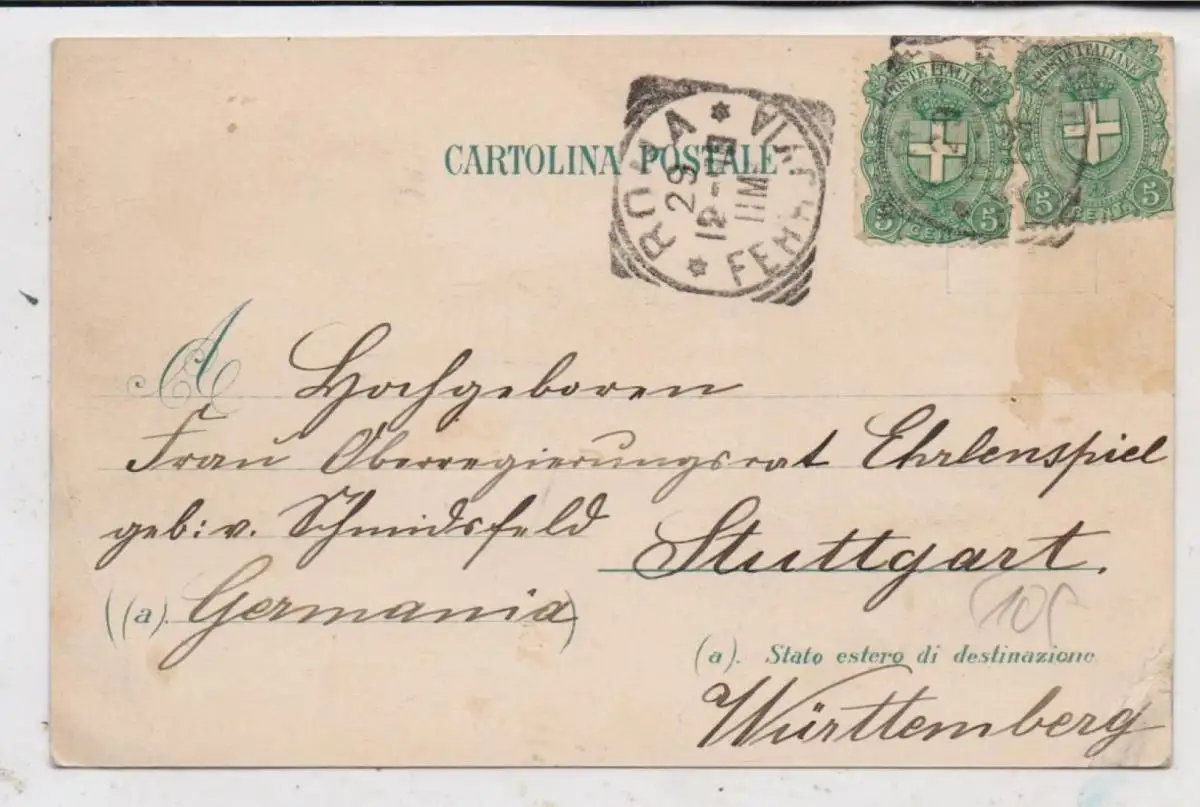 CARTOLINA POSTALE
ROMA
FERROVIA
29
12-
11M
POSTE ITALIANE
5 CENT. 5
POSTE ITALIANE
5 CENT. 5
A Hochgeboren
Frau Oberregierungsrat Ehrlenspiel
geb: v. Schmidsfeld
Stuttgart.
((a). Germania)
105
(a). Stato estero di destinazione
Württemberg